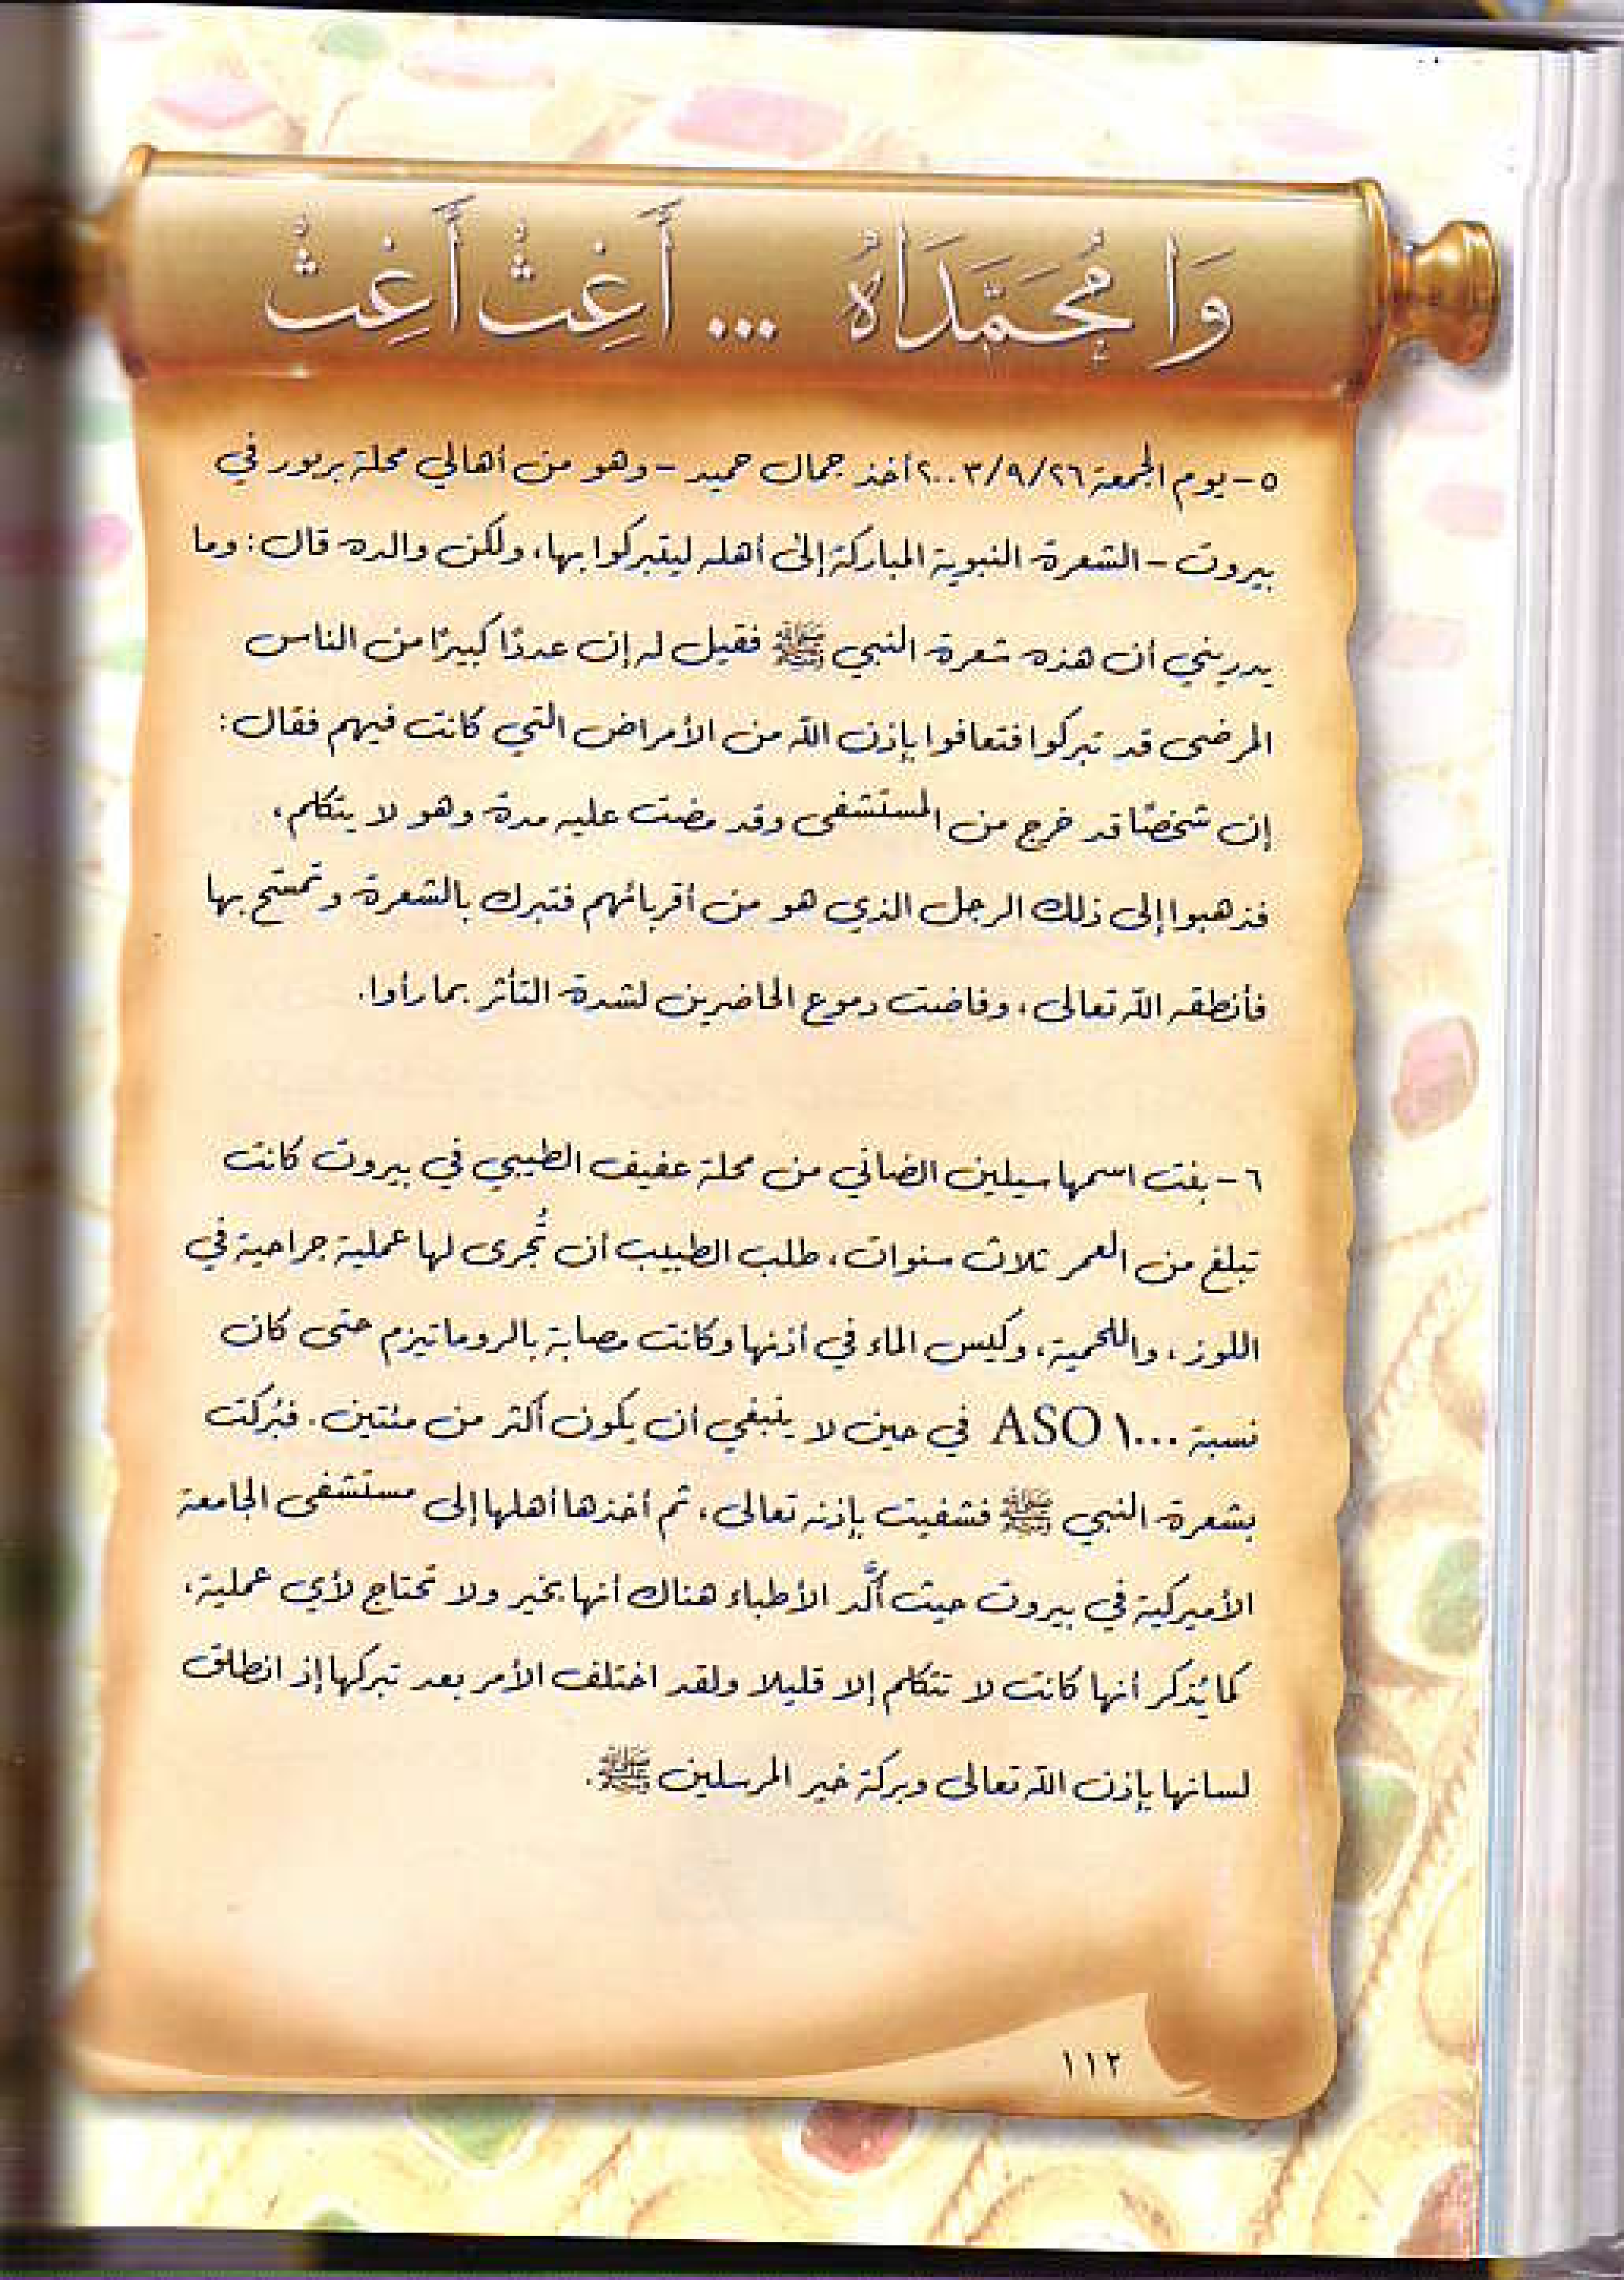 وَا مُحَمَّدَاهُ ... أَغِثْ أَغِثْ
٥- يوم الجمعة ٢٠٠٣/٩/٢٦ أخذ جمال حميد - وهو من أهالي محلة بربور في
بيروت - الشعرة النبوية المباركة إلى أهله ليتبركوا بها، ولكن والده قال: وما
يدريني أن هذه شعرة النبي ﷺ فقيل له إن عددًا كبيرًا من الناس
المرضى قد تبركوا فتعافوا بإذن الله من الأمراض التي كانت فيهم فقال:
إن شخصًا قد خرج من المستشفى وقد مضت عليه مدة وهو لا يتكلم،
فذهبوا إلى ذلك الرجل الذي هو من أقربائهم فتبرك بالشعرة وتمسّح بها
فأنطقه الله تعالى، وفاضت دموع الحاضرين لشدة التأثر بما رأوا.
٦- بنت اسمها سيلين الضاني من محلة عفيف الطيبي في بيروت كانت
تبلغ من العمر ثلاث سنوات، طلب الطبيب أن تُجرى لها عملية جراحية في
اللوز، واللحمية، وكيس الماء في أذنها وكانت مصابة بالروماتيزم حتى كان
نسبة ASO ١٠٠٠ في حين لا ينبغي أن يكون أكثر من مئتين. فبُركت
بشعرة النبي ﷺ فشفيت بإذنه تعالى، ثم أخذها أهلها إلى مستشفى الجامعة
الأميركية في بيروت حيث أكَّد الأطباء هناك أنها بخير ولا تحتاج لأي عملية،
كما يُذكر أنها كانت لا تتكلم إلا قليلا ولقد اختلف الأمر بعد تبركها إذ انطلق
لسانها بإذن الله تعالى وبركة خير المرسلين ﷺ.
١١٢